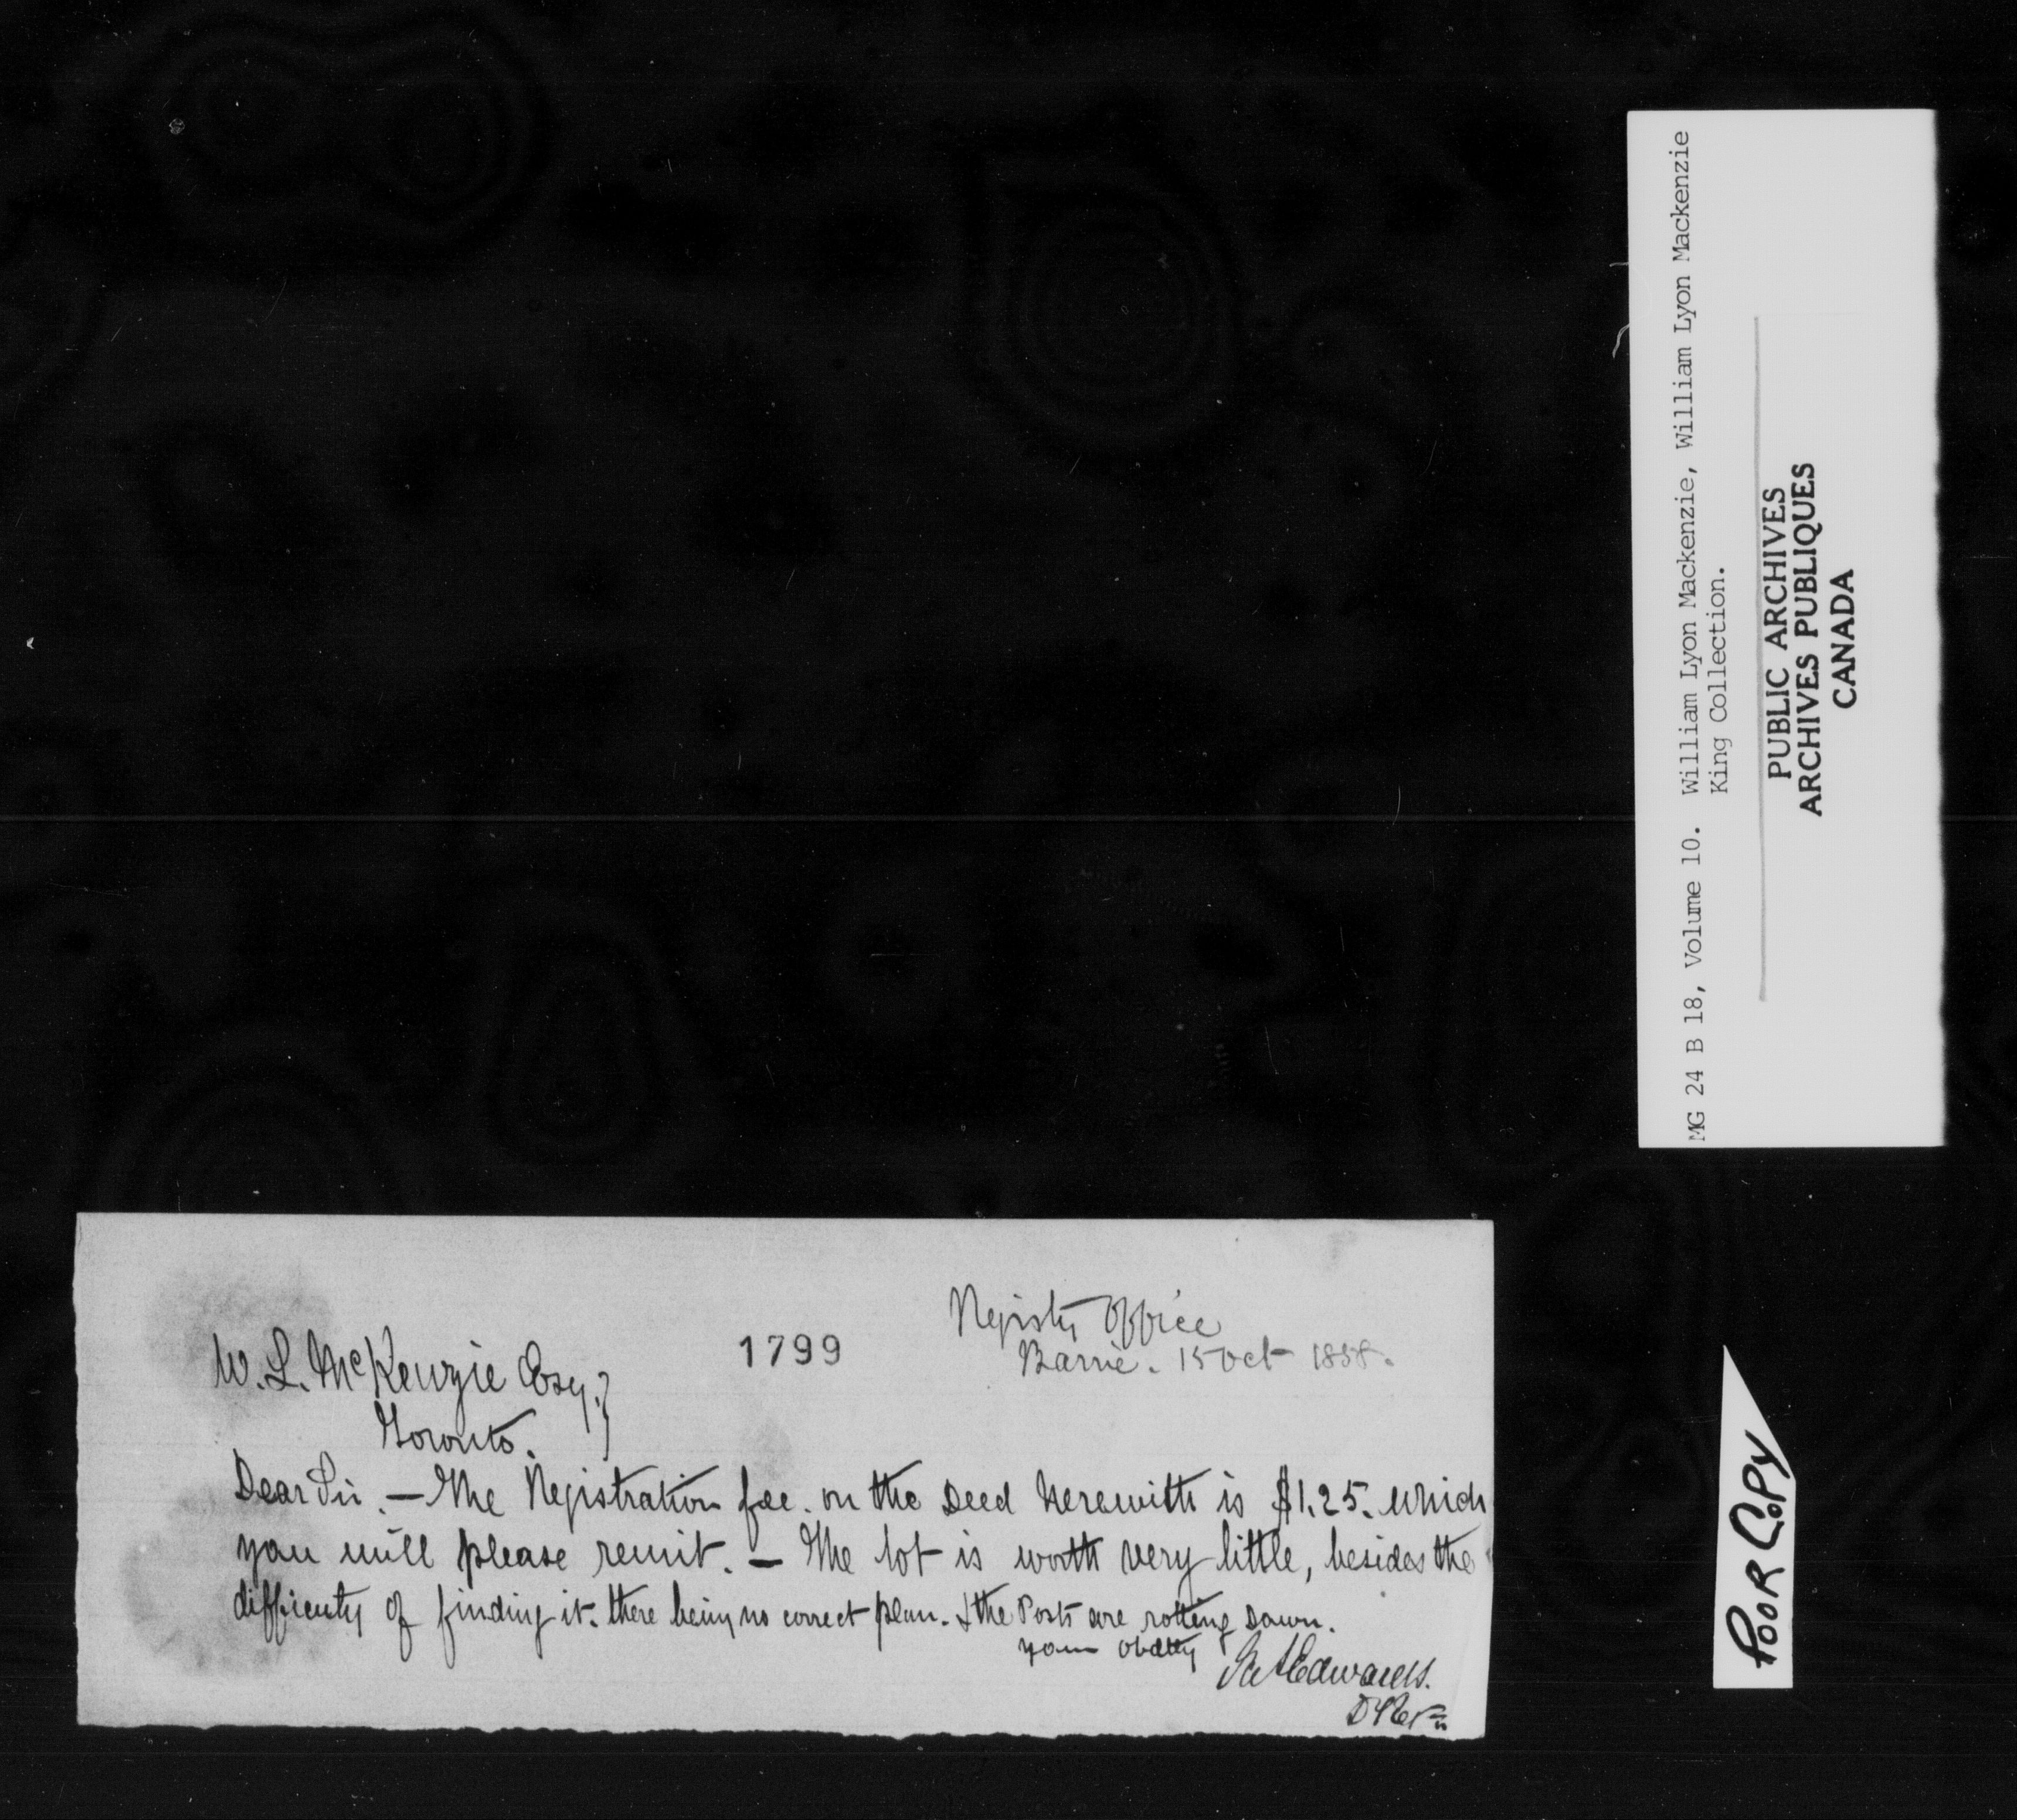 MG 24 B 18, Volume 10. William Lyon Mackenzie, William Lyon Mackenzie
King Collection.
PUBLIC ARCHIVES
ARCHIVES PUBLIQUES
CANADA
Registry Office
1799
Barrie. 15 Oct 1858.
W. L. McKenzie Esq.
Toronto.
Dear Sir. — The Registration fee. on the Deed herewith is $1.25. which
you will please remit. — The lot is worth very little, besides the
difficulty of finding it. there being no correct plan. & the Posts are rotting down.
your obdtly
Edwards.
POOR COPY